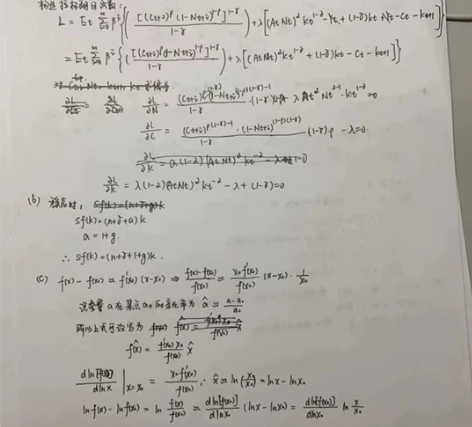 构造拉格朗日函数:
L = Et Σ β^i { [(Ct+i)^ρ (1-Nt+i)^1-ρ]^1-γ / 1-γ + λ[(AtNt)^α kt^1-α - Yt + (1-δ)kt + Yt - Ct - kt+1] }
= Et Σ β^i { [(Ct+i)^ρ (1-Nt+i)^1-ρ]^1-γ / 1-γ + λ[(AtNt)^α kt^1-α + (1-δ)kt - Ct - kt+1] }
∂L/∂N =
λ At^α Nt^α-1 · kt^1-α = 0
∂L/∂C = (Ct+i)^ρ(1-γ)-1 · (1-Nt+i)^(1-ρ)(1-γ) / 1-γ · (1-γ)·ρ - λ = 0
∂L/∂k = λ(1-α)(AtNt)^α kt^-α - λ + (1-δ) = 0
(b) 稳态时,
sf(k) = (n+δ+a)k
a = 1+g.
∴ sf(k) = (n+δ+1+g)k.
(c) f(x) - f(x₀) = f'(x₀)(x-x₀) ⇒ f(x)-f(x₀) / f(x₀) = x₀f'(x₀) / f(x₀) (x-x₀)· 1/x₀
设变量 a 在某点 a₀ 的变化率为 â = a-a₀ / a₀
则以上式可改写为
f̂(x) = f'(x₀)x₀ / f(x₀) x̂
dln[f(x)] / dlnx |x=x₀ = x₀f'(x₀) / f(x₀) ∵ x̂ ≈ ln(x/x₀) = lnx - lnx₀
lnf(x) - lnf(x₀) = ln f(x)/f(x₀) = dln[f(x₀)] / dlnx (lnx - lnx₀) = dln[f(x₀)] / dlnx₀ ln x/x₀